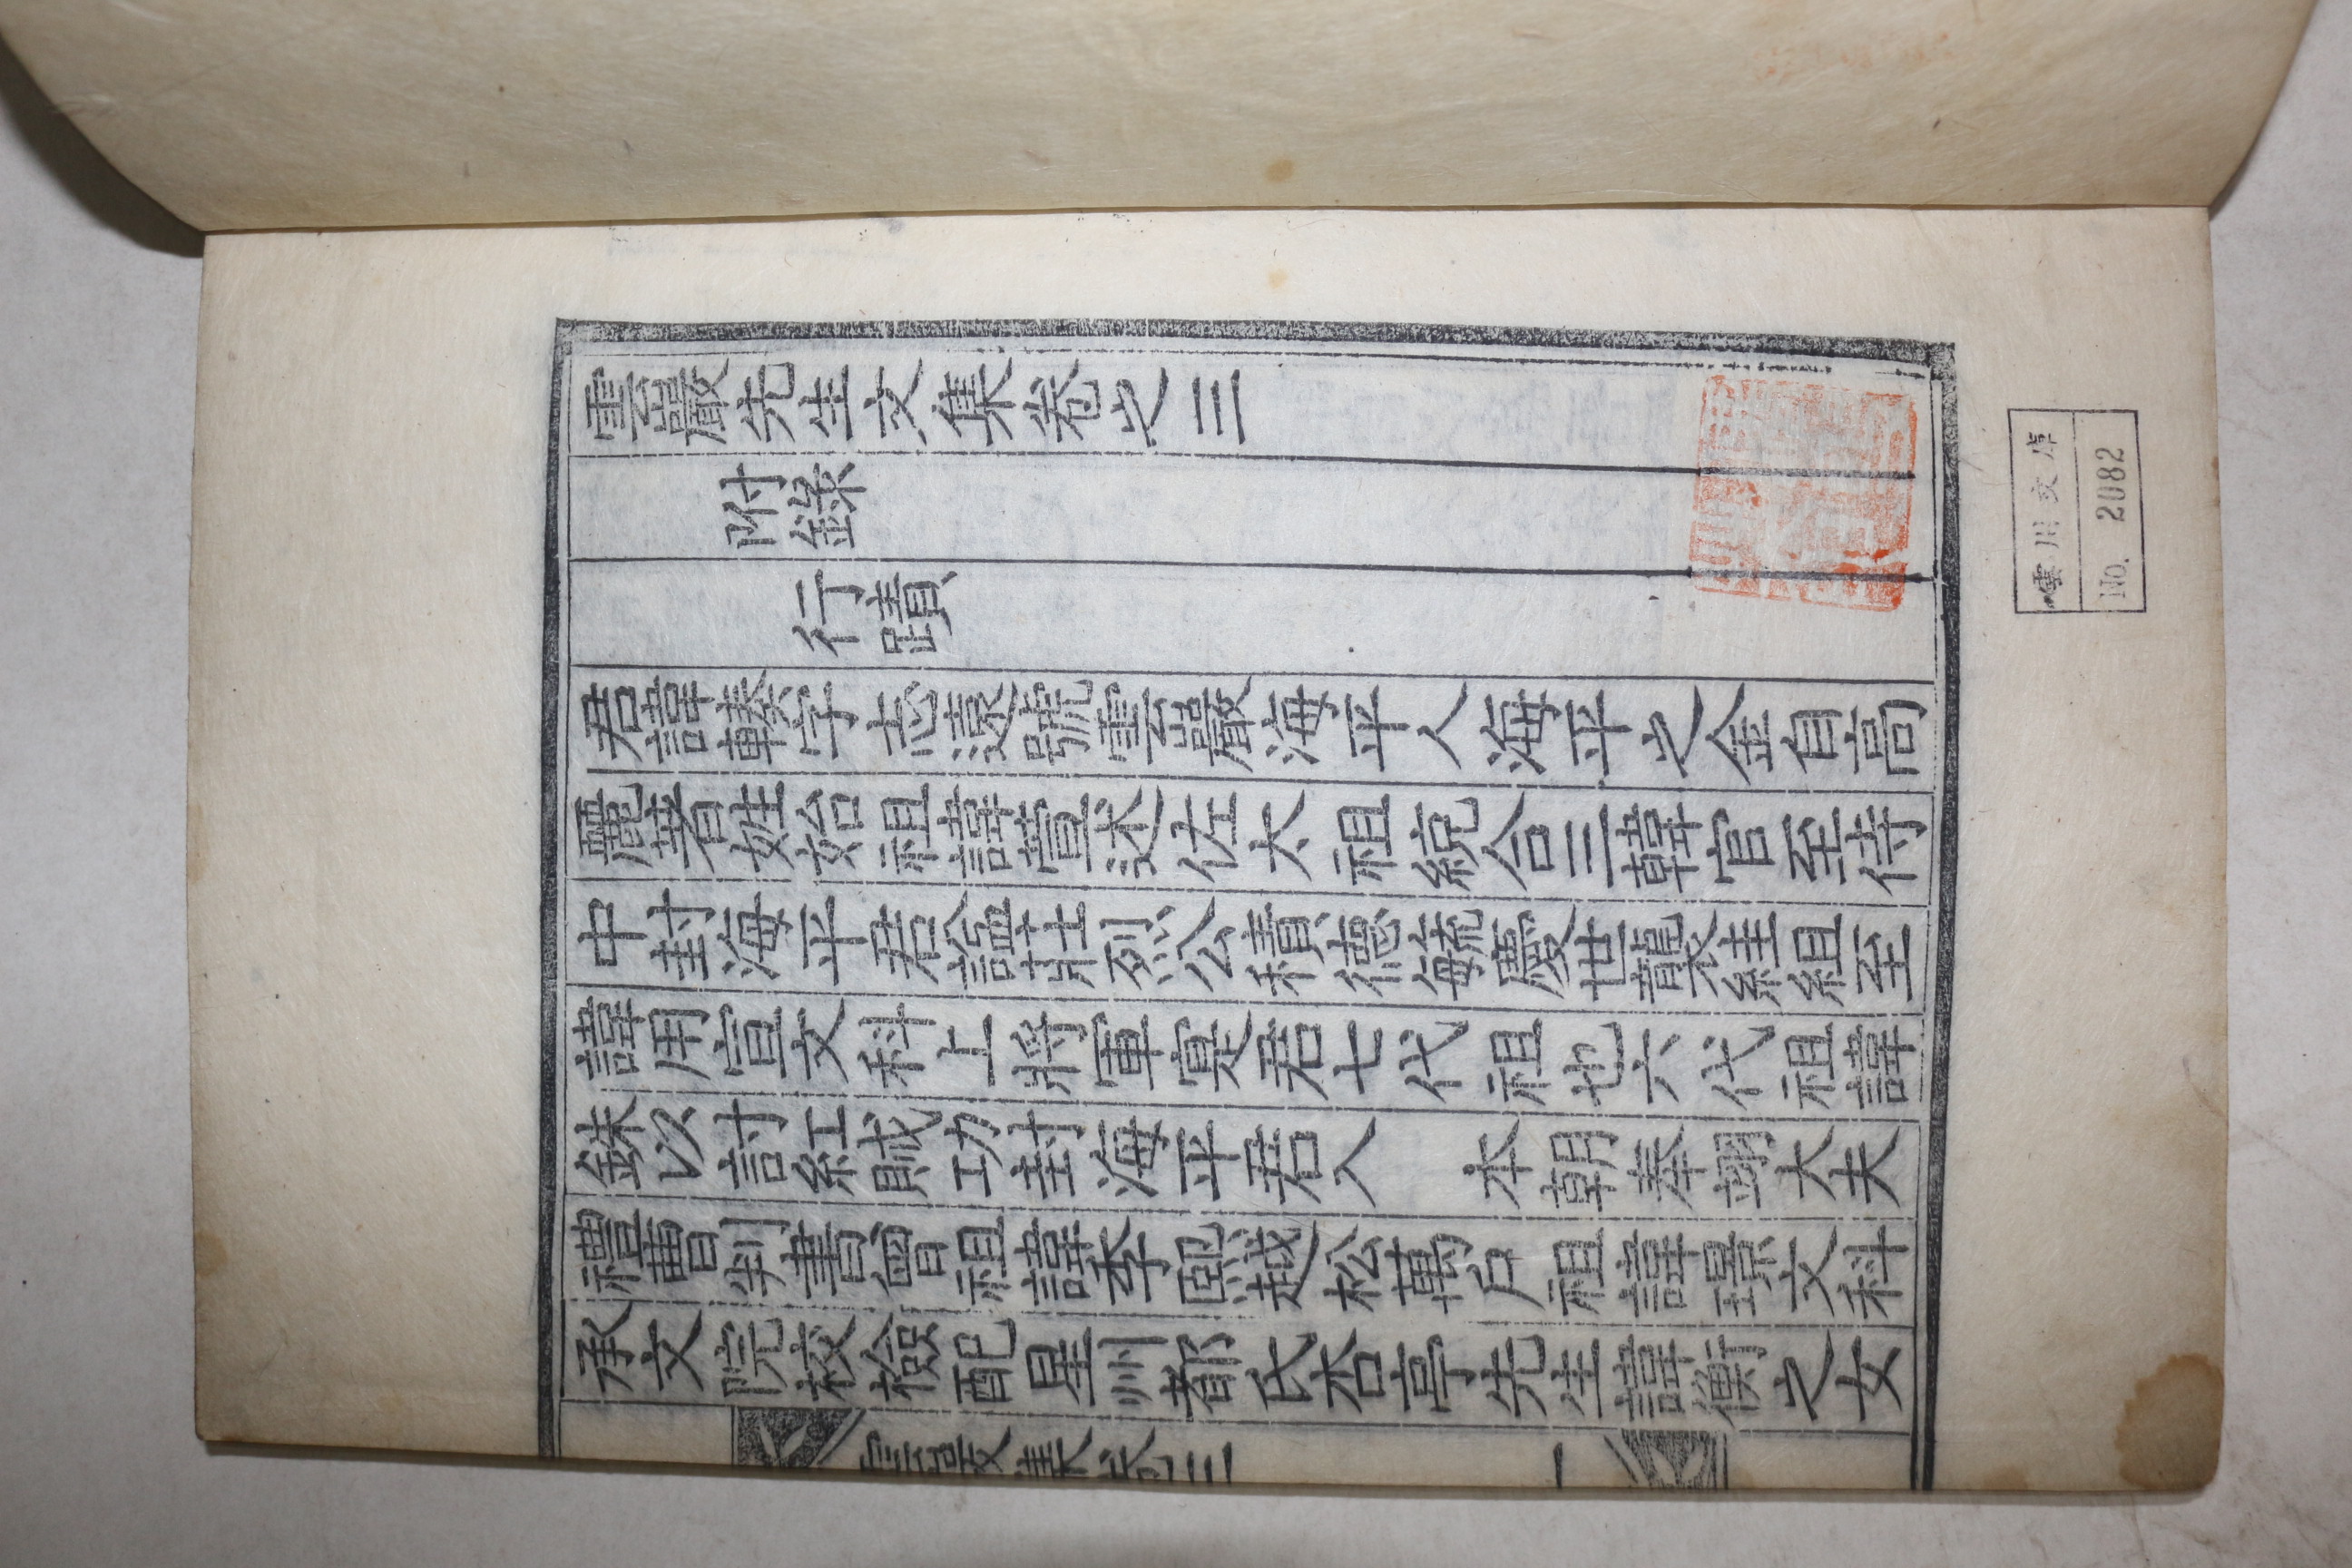 雲巖先生文集卷之三
附錄
行蹟
君諱緣字志遠號雲巖海平人海平之金自高
麗著姓始祖諱萱述佐太祖統合三韓官至侍
中封海平君諡壯烈公積德毓慶世襲圭組至
諱用宣文科上將軍寔君七代祖也六代祖諱
銖以討紅賊功封海平君入 本朝奉翊大夫
禮曹判書曾祖諱孝忠 松萬戶祖諱璟文科
承文院校檢配星州都氏杏亭先生諱衡之女
雲巖文集卷三 一
雲川文庫
No. 2082